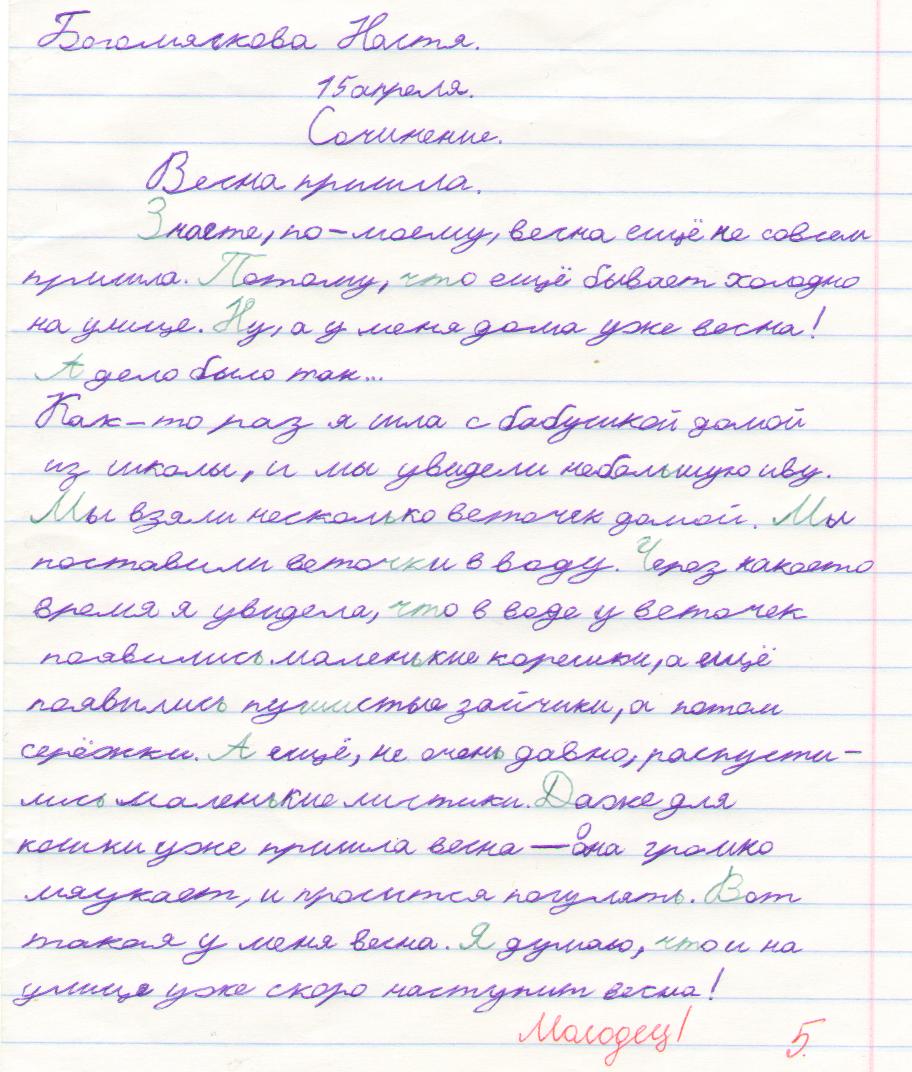 Богомяскова Настя.
15 апреля.
Сочинение.
Весна пришла.
Знаете, по-моему, весна ещё не совсем
пришла. Потому, что ещё бывает холодно
на улице. Ну, а у меня дома уже весна!
А дело было так...
Как-то раз я шла с бабушкой домой
из школы, и мы увидели небольшую иву.
Мы взяли несколько веточек домой. Мы
поставили веточки в воду. Через какоето
время я увидела, что в воде у веточек
появились маленькие корешки, а ещё
появились пушистые зайчики, а потом
серёжки. А ещё, не очень давно, распусти-
лись маленькие листики. Даже для
кошки уже пришла весна — она громко
мяукает, и просится погулять. Вот
такая у меня весна. Я думаю, что и на
улице уже скоро наступит весна!
Молодец! 5.